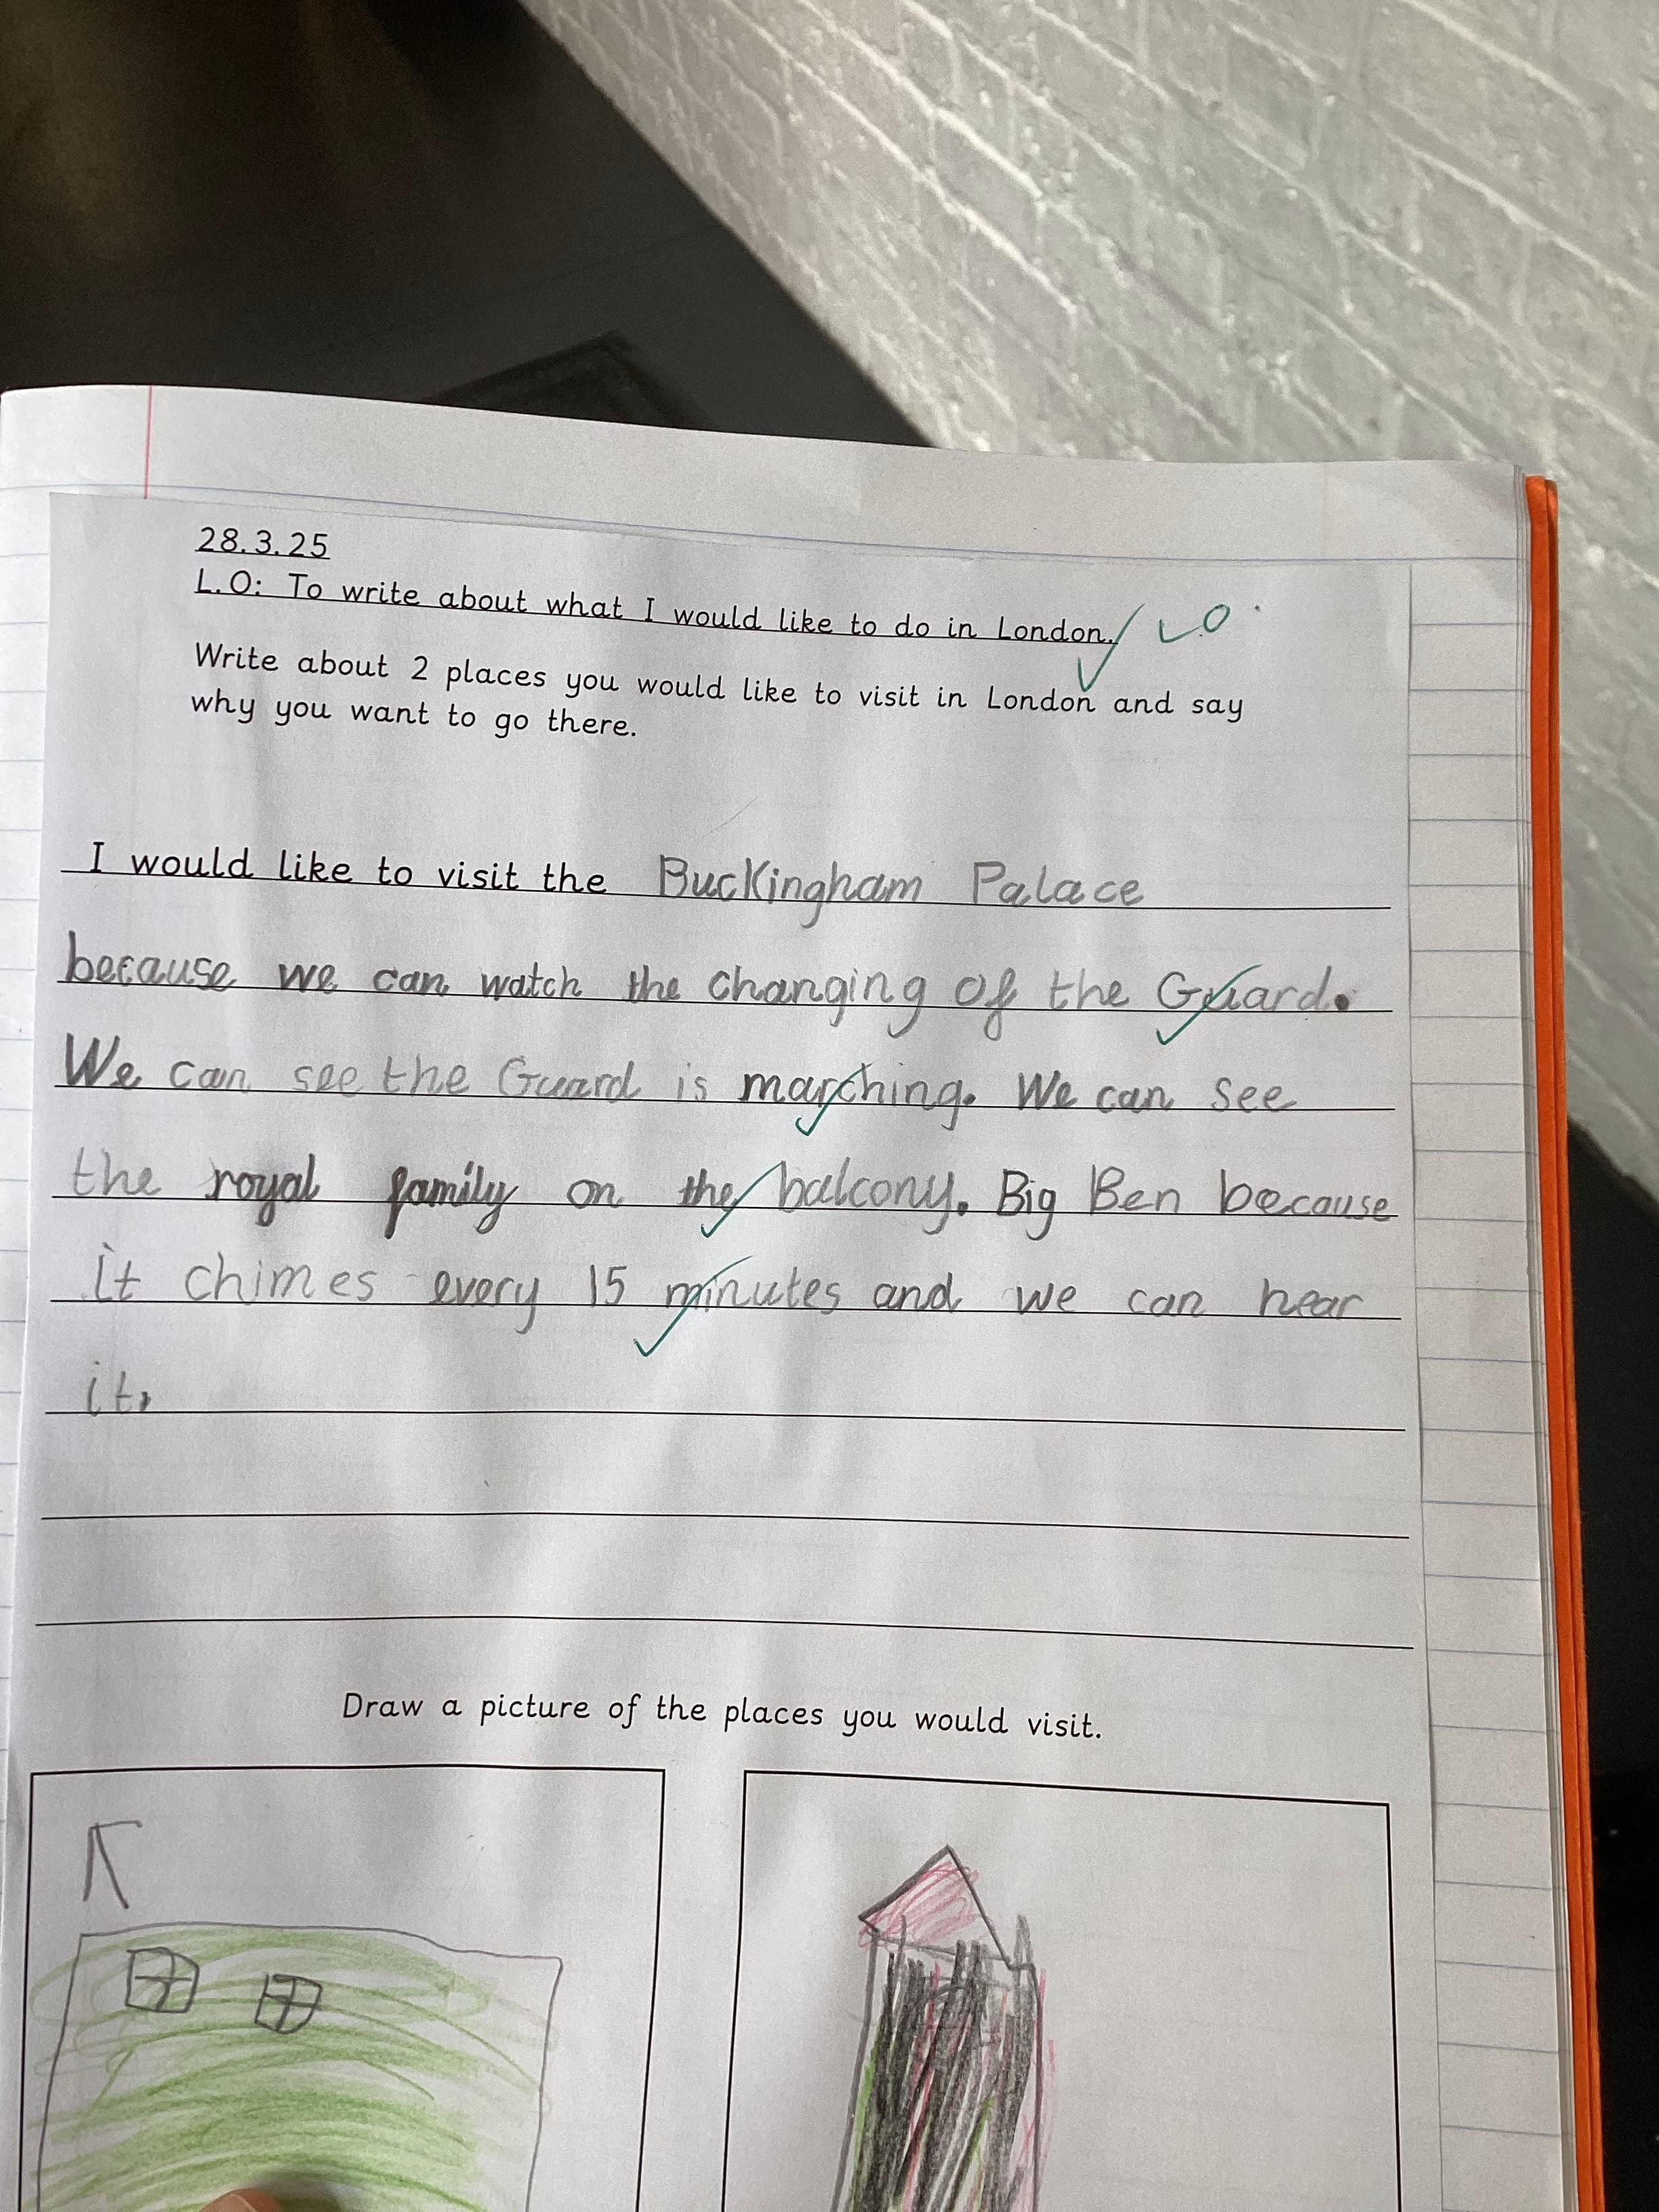 28.3.25
L.O: To write about what I would like to do in London.
Write about 2 places you would like to visit in London and say
why you want to go there.
I would like to visit the Buckingham Palace
because we can watch the changing of the Guard.
We can see the Guard is marching. We can see
the royal family on the balcony. Big Ben because
it chimes every 15 minutes and we can hear
it.
Draw a picture of the places you would visit.